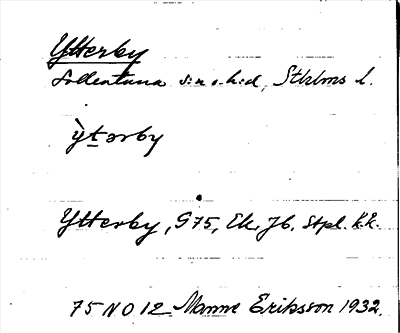 Ytterby
Sollentuna s:n o. h:d, Sthlms l.
ỳtərby
Ytterby, G75, Ek. Jb. Stpl. K.K.
75 NO 12 Manne Eriksson 1932.